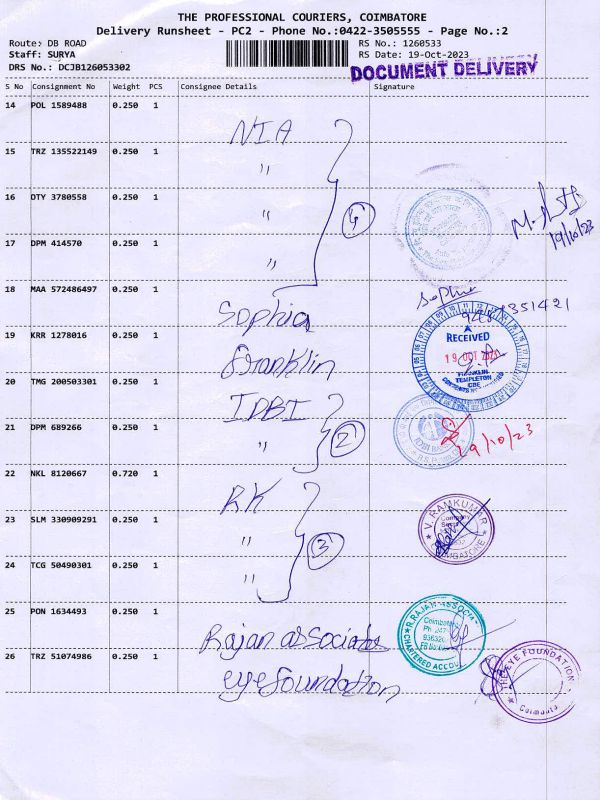 THE PROFESSIONAL COURIERS, COIMBATORE
Delivery Runsheet - PC2 - Phone No.:0422-3505555 - Page No.:2
Route: DB ROAD
RS No.: 1260533
Staff: SURYA
RS Date: 19-Oct-2023
DRS No.: DCJB126053302
DOCUMENT DELIVERY
S No Consignment No Weight PCS Consignee Details Signature
14 POL 1589488 0.250 1
NIA
15 TRZ 135522149 0.250 1
"
16 OTY 3780558 0.250 1
"
4
19/10/23
17 DPM 414570 0.250 1
"
18 MAA 572486497 0.250 1
Sophia
Sophia
351421
19 KRR 1278016 0.250 1
Franklin
RECEIVED
19 OCT
FRANKLIN
TEMPLETON
CBE
20 TMG 200503301 0.250 1
IDBI
21 DPM 689266 0.250 1
"
2
19/10/23
22 NKL 8120667 0.720 1
RK
23 SLM 330909291 0.250 1
"
3
V. RAMKUMAR
COIMBATORE
24 TCG 50490301 0.250 1
"
25 PON 1634493 0.250 1
Rajan associate
R.RAJAN ASSOCIA
Coimbato
CHARTERED ACCOU
26 TRZ 51074986 0.250 1
eyefoundation
THE EYE FOUNDATION